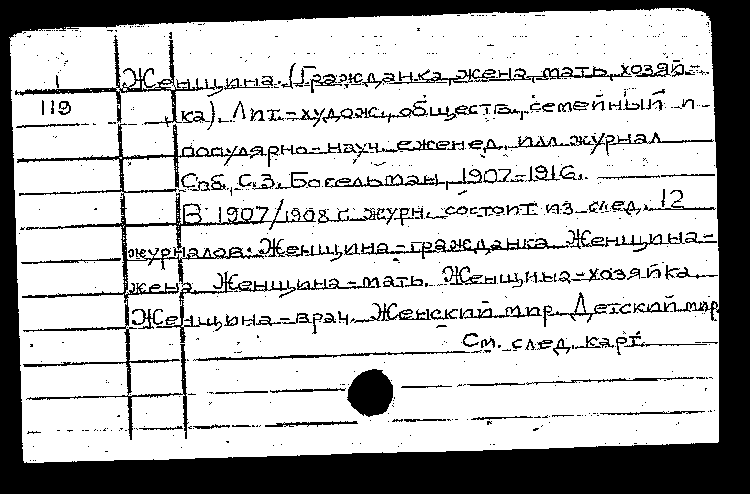 1
119
Женщина. (Гражданка, жена, мать, хозяй-
ка). Лит.-худож., обществ., семейный и
популярно-науч. еженед. илл. журнал
Спб, С.З. Босельман, 1907-1916.
В 1907/1908 г. журн. состоит из след. 12
журналов: Женщина-гражданка. Женщина-
жена. Женщина-мать. Женщина-хозяйка.
Женщина-врач. Женский мир. Детский мир
См. след. карт.